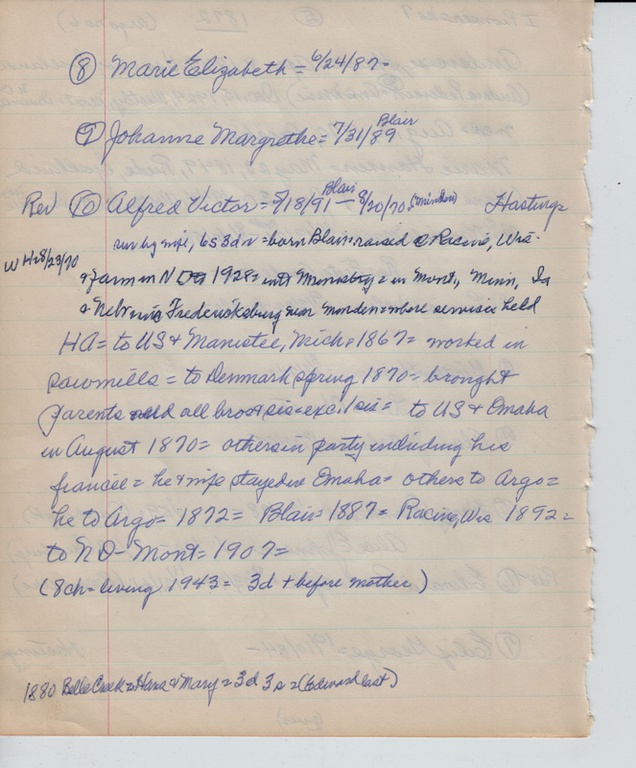 ⑧ Marie Elizabeth = 6/24/87-
Blair
⑨ Johanne Margrethe = 7/31/89
Blair
Rev ⑩ Alfred Victor = 8/18/91 — 8/20/70. (Minden) Hastings
sur by wife, 6s 3d = born Blair = raised @ Racine, Wis.
WH 8/23/70
& farm in N 1928 = in Mont., Minn, Ia
& Nebr Fredericksburg near Minden = where services held
HA = to US & Manistee, Mich = 1867 = worked in
sawmills = to Denmark spring 1870 = brought
parents and all bros & sis = exc. 1 sis = to US & Omaha
in August 1870 = others in party including his
fiancée = he & wife stayed in Omaha = others to Argo =
he to Argo = 1872 = Blair = 1887 = Racine, Wis 1892 =
to ND - Mont = 1907 =
(8ch = living 1943 = 3d + before mother)
1880 Belle Creek = Hans & Mary = 3d 3s = (Edward last)